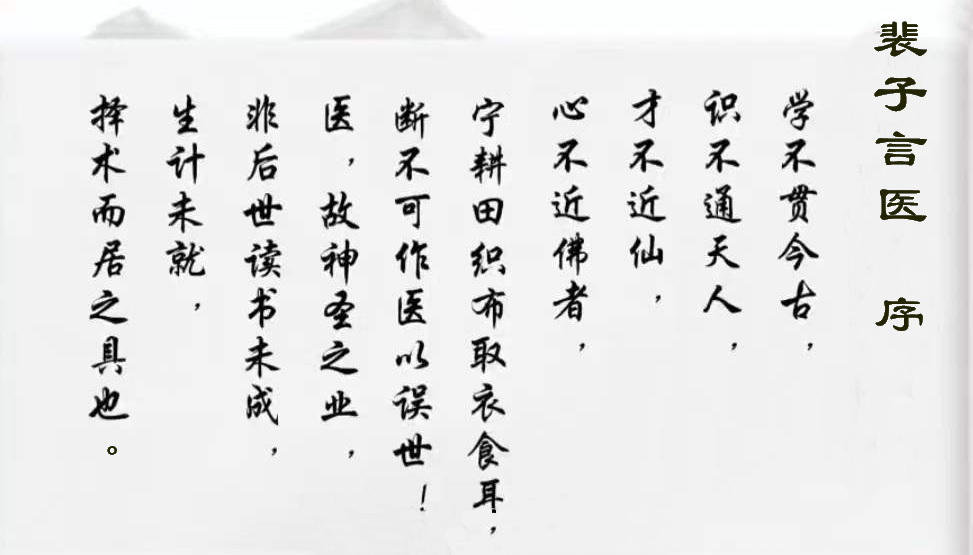 裴子言医 序
学不贯今古，
识不通天人，
才不近仙，
心不近佛者，
宁耕田织布取衣食耳，
断不可作医以误世！
医，故神圣之业，
非后世读书未成，
生计未就，
择术而居之具也。